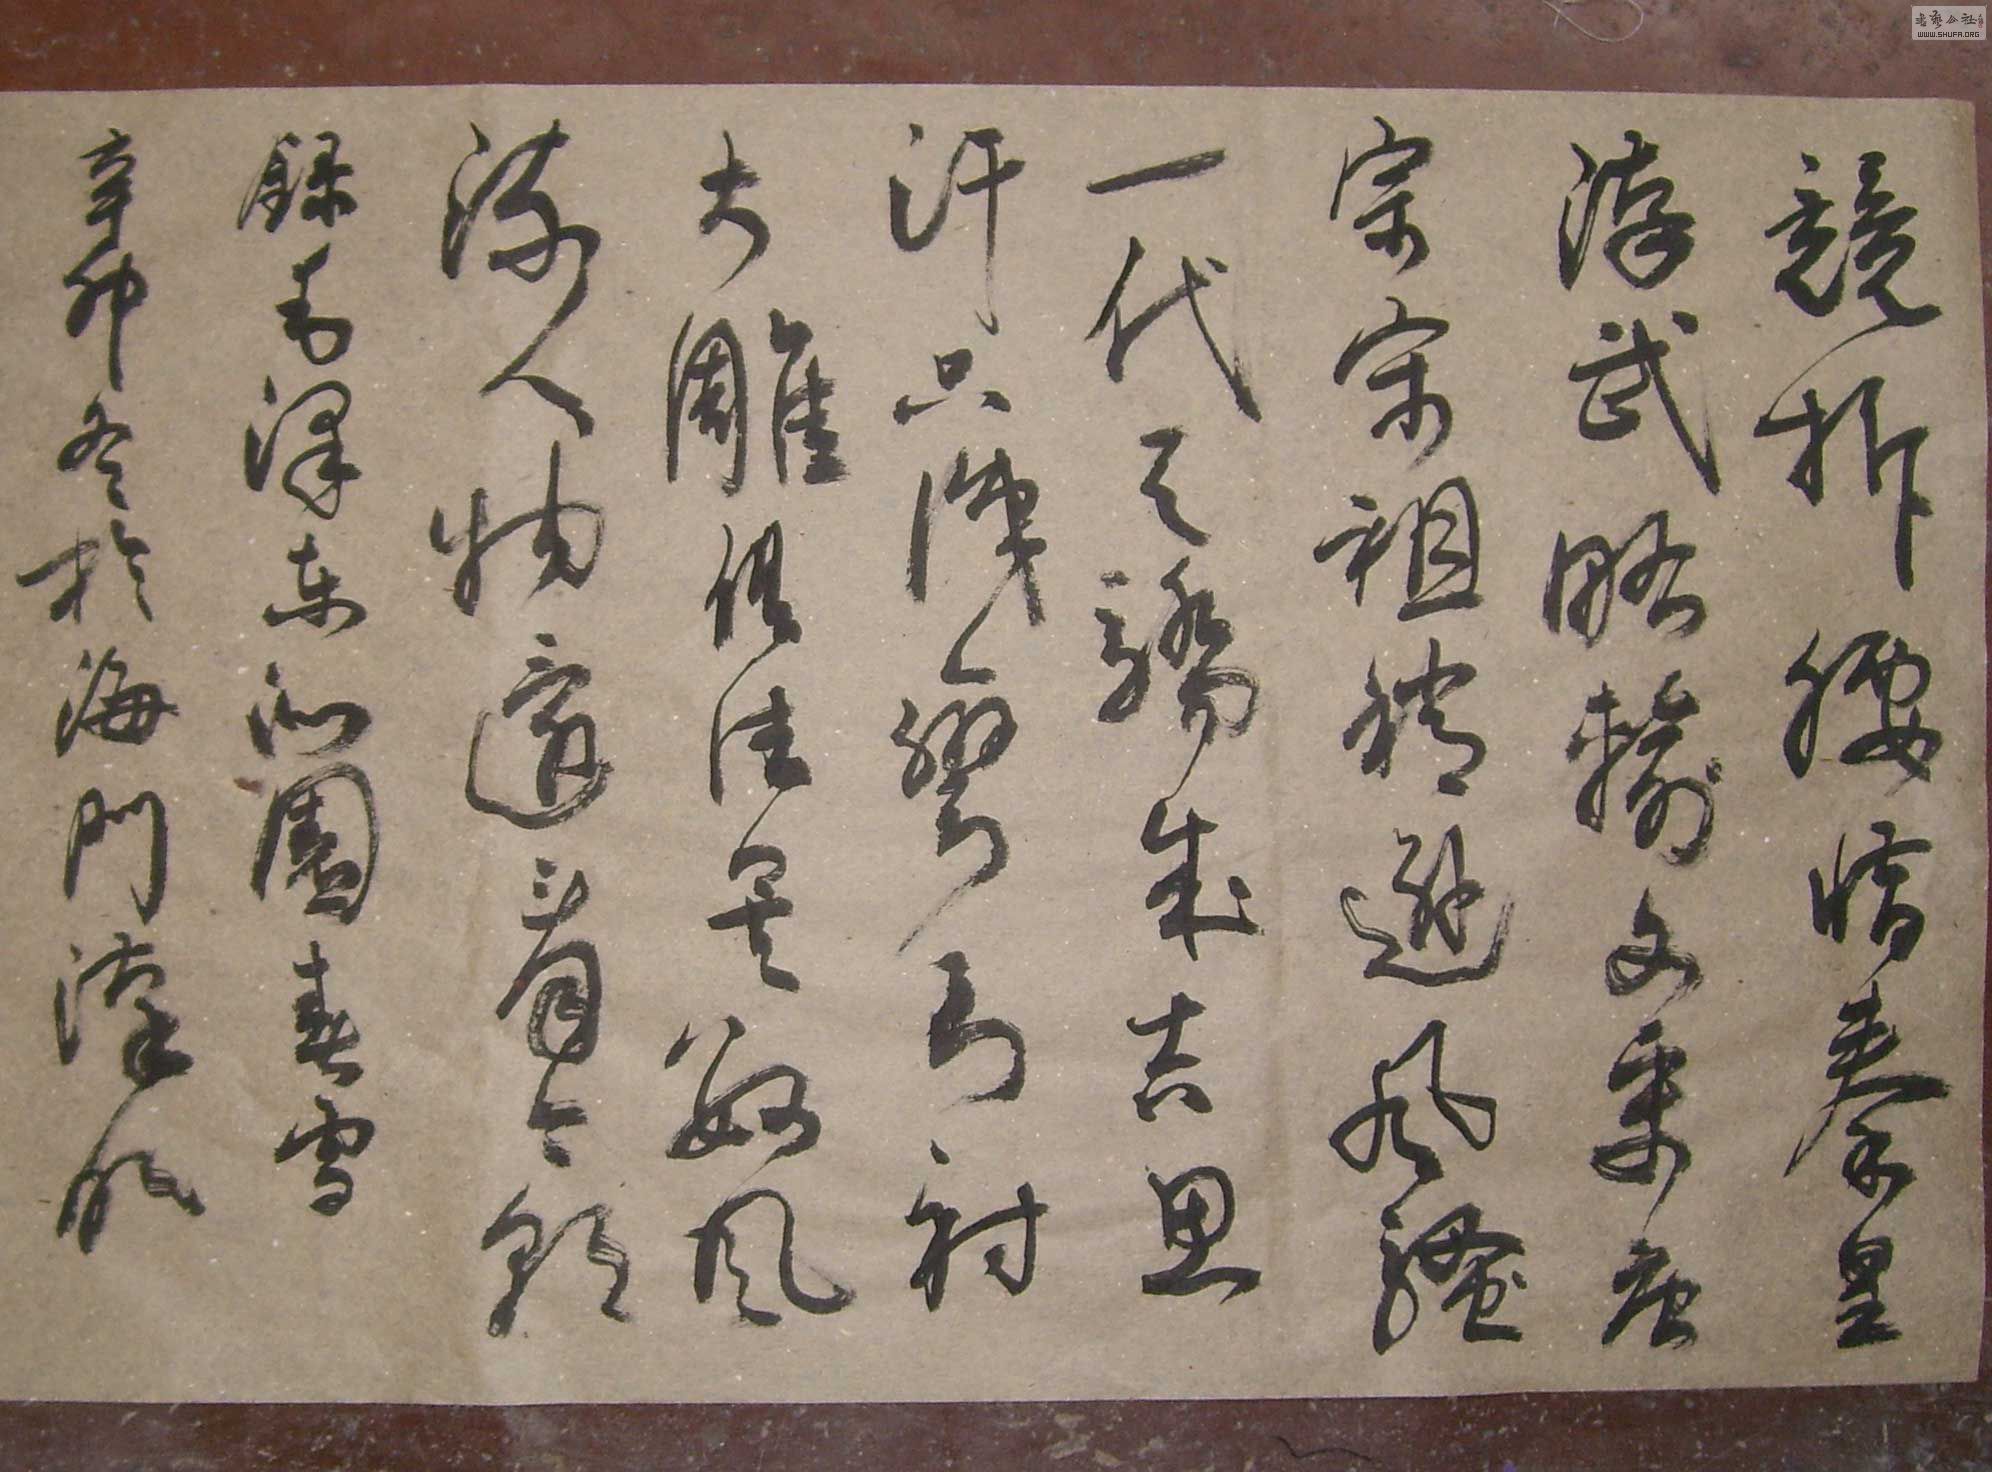 競折腰惜秦皇
漢武略輸文采唐
宗宋祖稍遜风騷
一代天驕成吉思
汗只識彎弓射
大雕俱往矣數风
流人物還看今朝
錄毛澤東沁園春雪
辛卯冬於海門漢
書藝公社
WWW.SHUFA.ORG